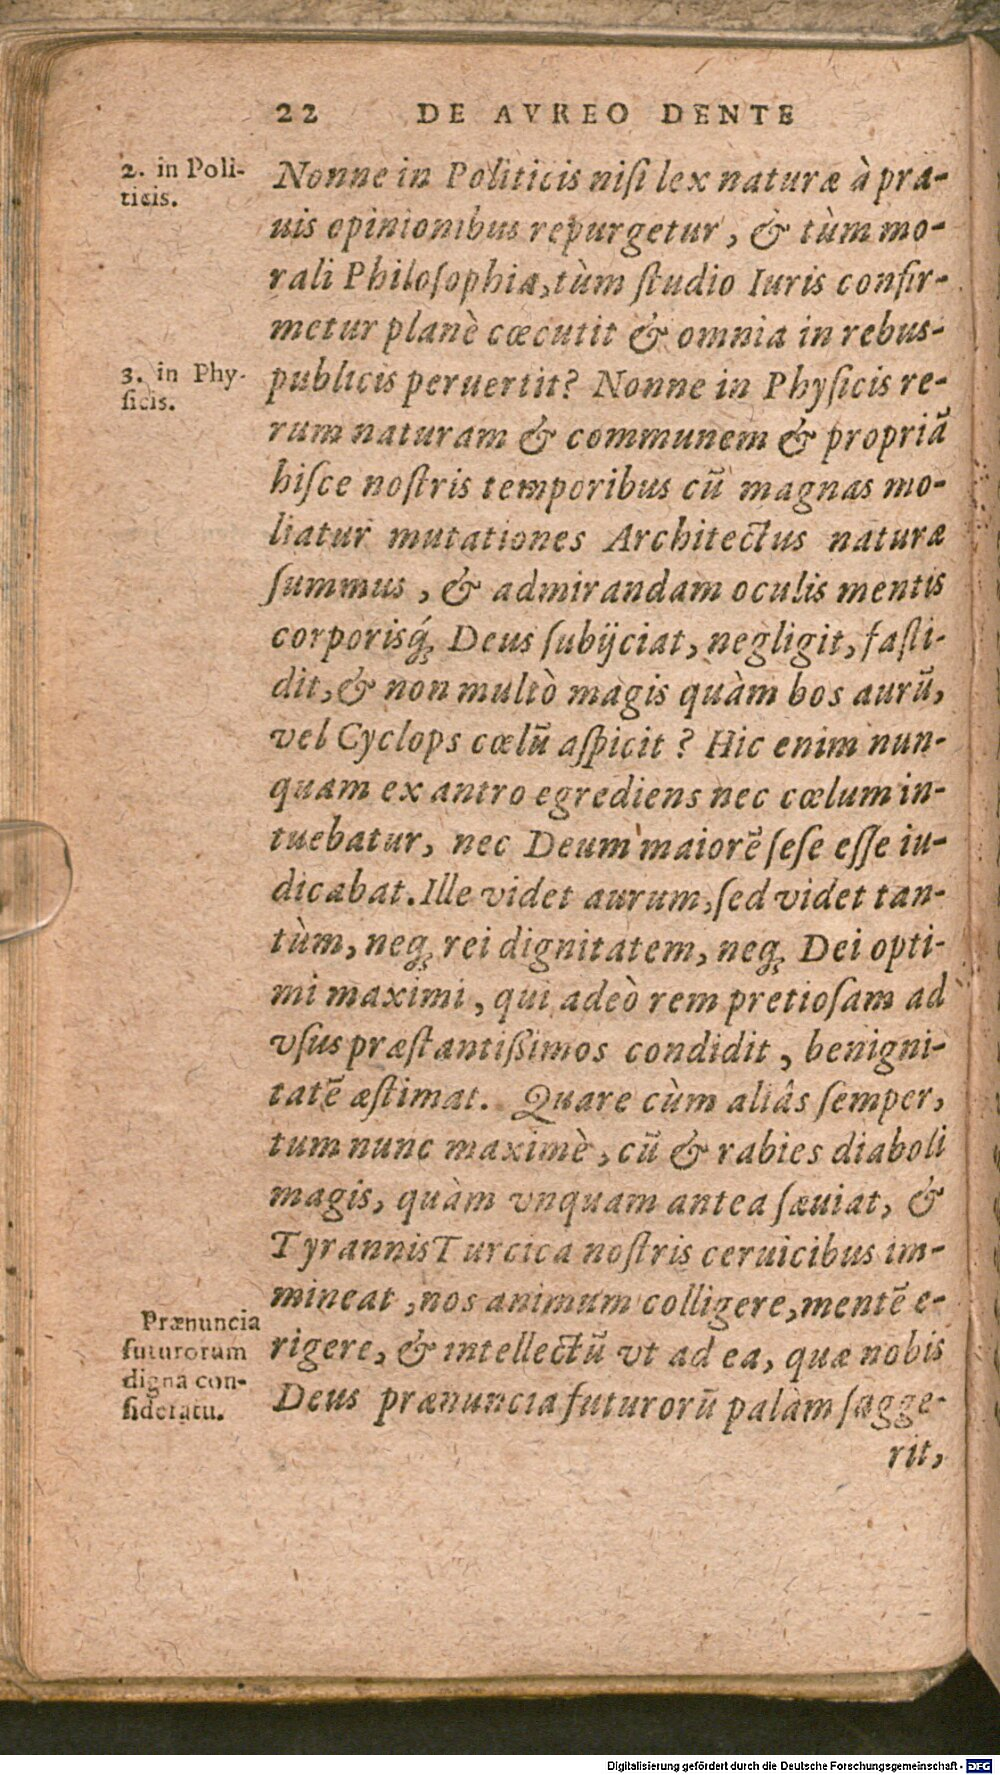 22 DE AVREO DENTE
2. in Poli-
ticis.
Nonne in Politicis niſi lex naturæ à pra-
uis opinionibus repurgetur, & tùm mo-
rali Philoſophia, tùm ſtudio Iuris confir-
metur planè cœcutit & omnia in rebus-
3. in Phy-
ſicis.
publicis peruertit? Nonne in Phyſicis re-
rum naturam & communem & propriā
hiſce noſtris temporibus cū magnas mo-
liatur mutationes Architectus naturæ
ſummus, & admirandam oculis mentis
corporisq́; Deus ſubijciat, negligit, faſti-
dit, & non multò magis quàm bos aurū,
vel Cyclops cœlū aſpicit? Hic enim nun-
quam ex antro egrediens nec cœlum in-
tuebatur, nec Deum maiorē ſeſe eſſe iu-
dicabat. Ille videt aurum, ſed videt tan-
tùm, neq; rei dignitatem, neq; Dei opti-
mi maximi, qui adeò rem pretioſam ad
vſus præſtantißimos condidit, benigni-
tatē æſtimat. Quare cùm aliâs ſemper,
tum nunc maximè, cū & rabies diaboli
magis, quàm vnquam antea ſæuiat, &
Tyrannis Turcica noſtris ceruicibus im-
mineat, nos animum colligere, mentē e-
Prænuncia
futurorum
digna con-
ſideratu.
rigere, & intellectū vt ad ea, quæ nobis
Deus prænuncia futurorū palàm ſugge-
rit,
Digitalisierung gefördert durch die Deutsche Forschungsgemeinschaft - DFG